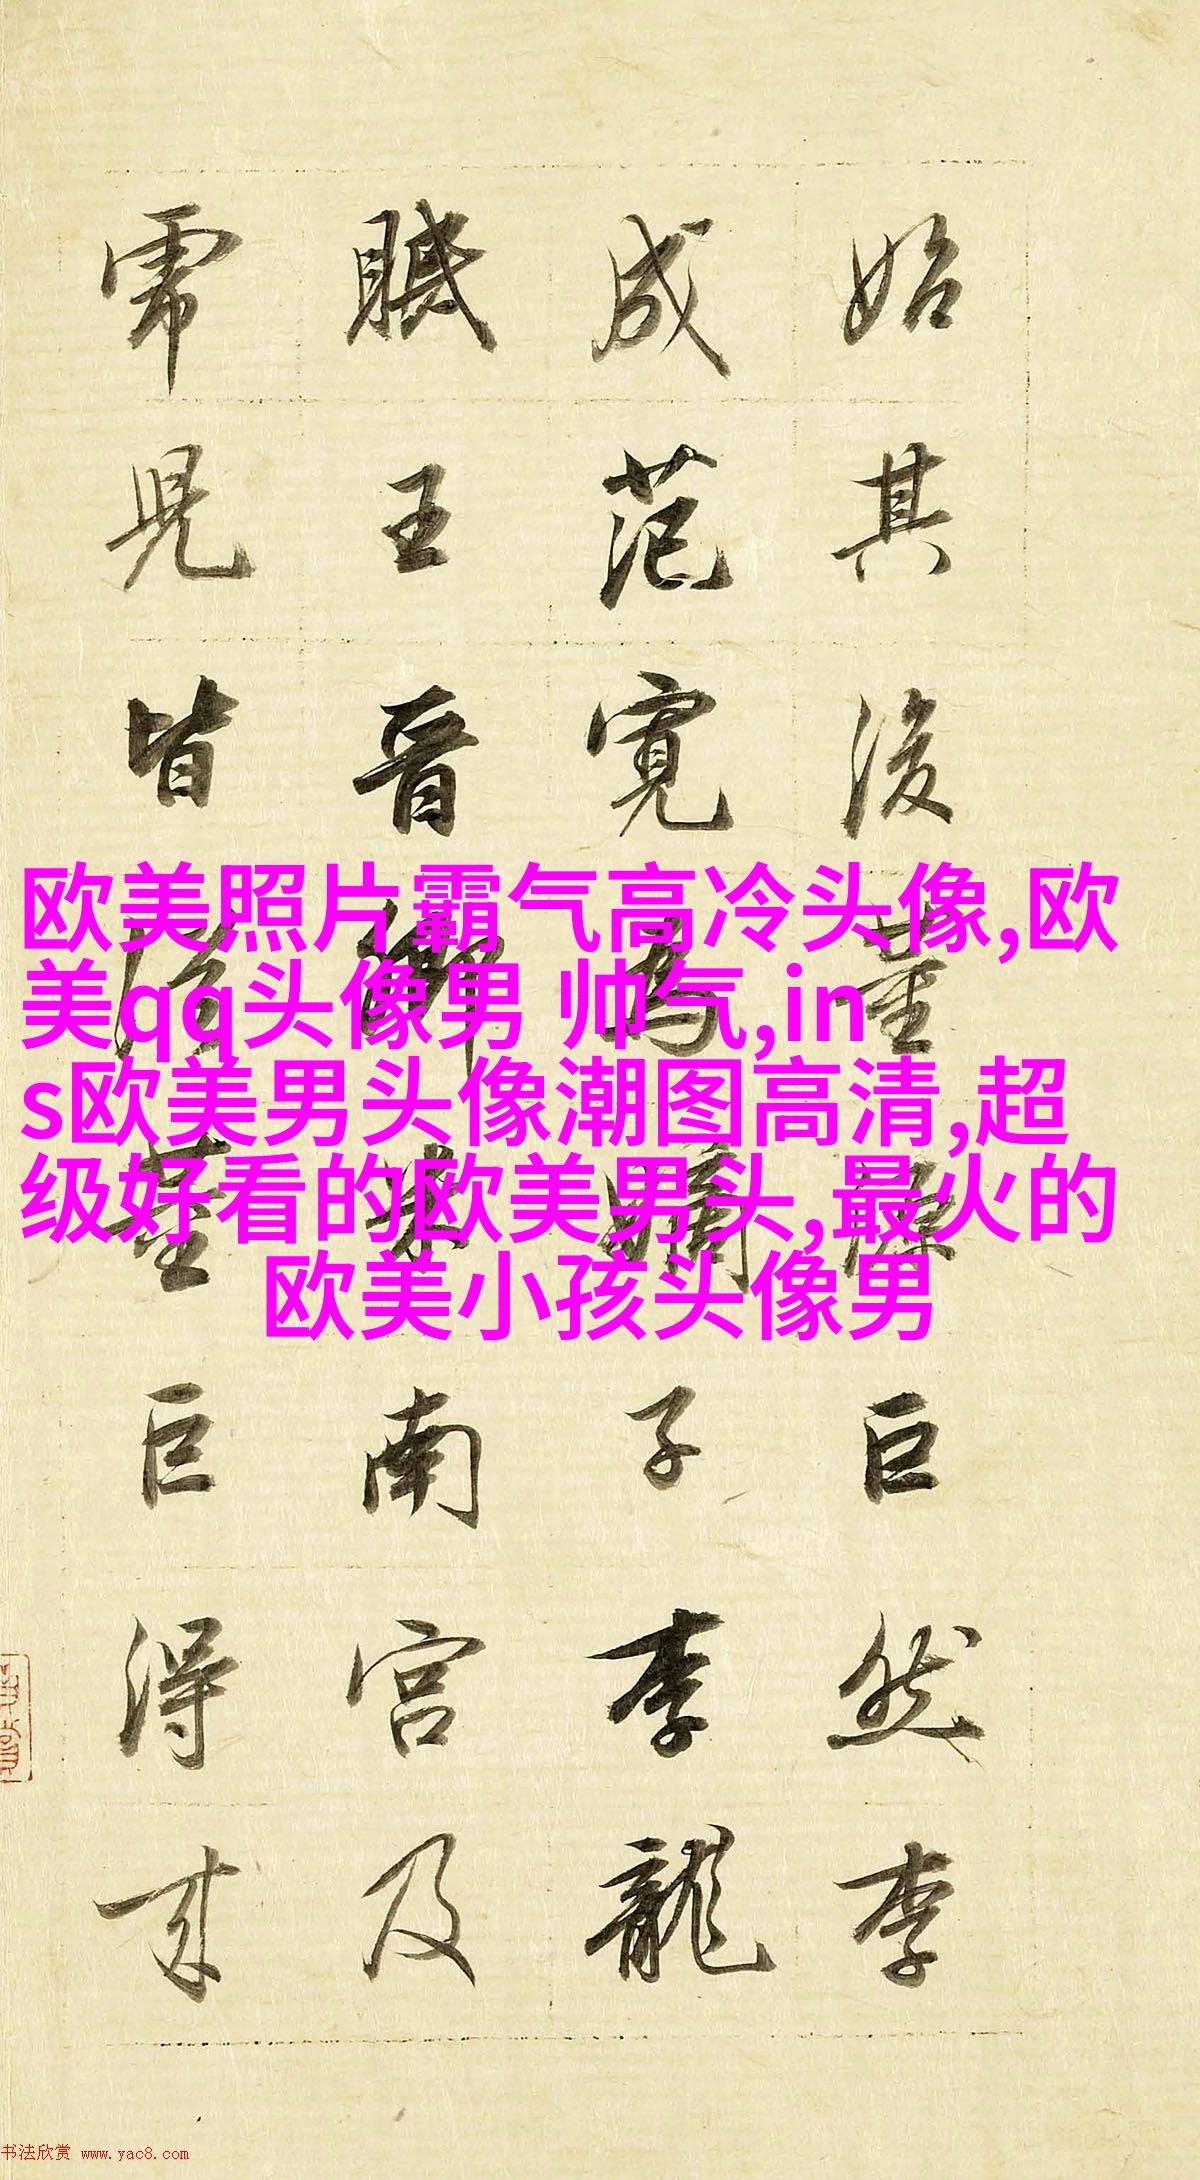 始其後董源巨然李
成范寬為嫡子李龍
眠王晉卿米南宮及
虎兒皆從董巨得来
欧美照片霸气高冷头像,欧
美qq头像男 帅气,in
s欧美男头像潮图高清,超
级好看的欧美男头,最火的
欧美小孩头像男
书法欣赏 www.yac8.com